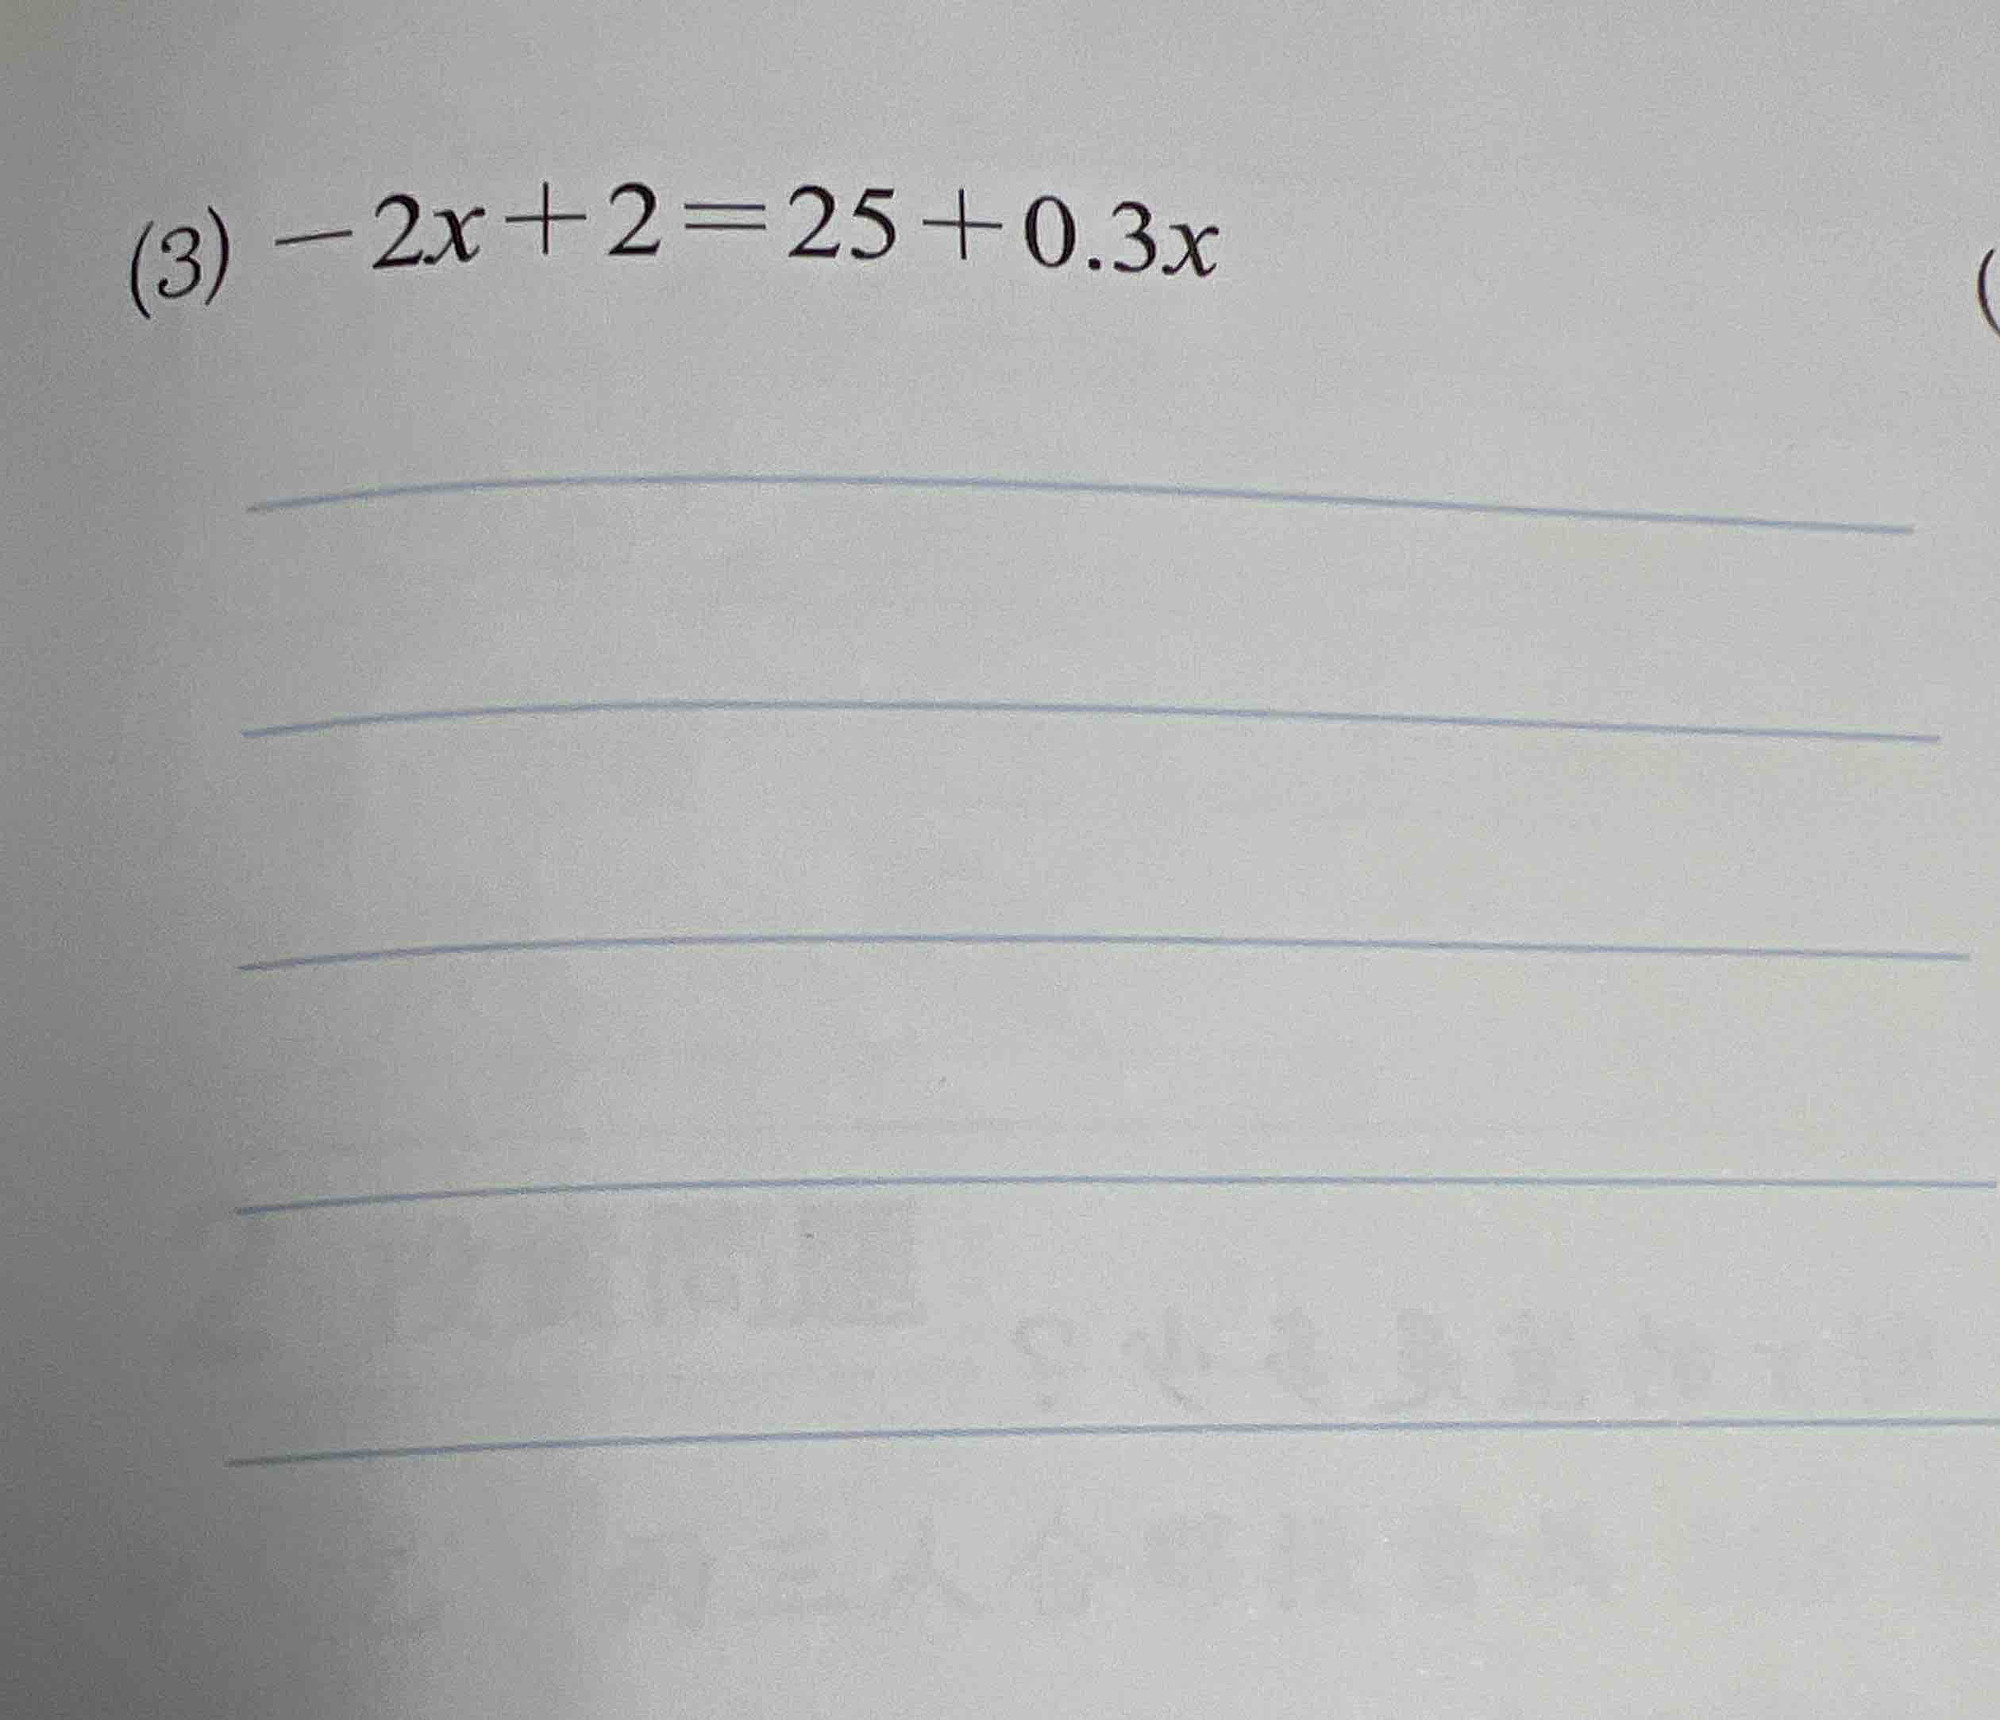 (3) －2x＋2＝25＋0.3x